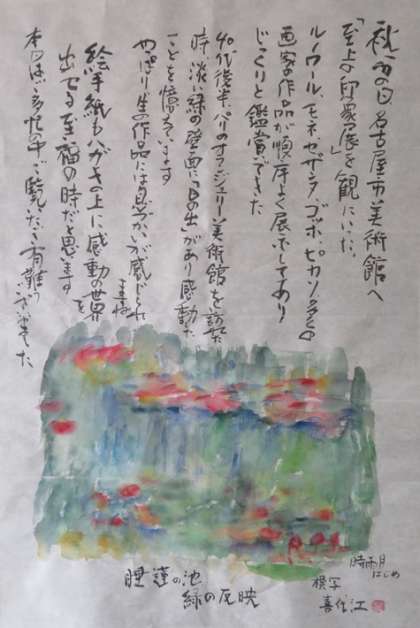 秋分の日名古屋市美術館へ
「至上の印象展」を観にいった
ルノワール、モネ、セザンヌ、ゴッホ、ピカソ、などの
画家の作品が順序よく展示してあり
じっくりと鑑賞ができた
40代後半パリのオランジュリー美術館を訪れた
時、淡い緑の壁面に「日の出」があり感動した
ことを憶えています
やっぱり生の作品には息づかいが感じられ
ますね
絵手紙もハガキの上に感動の世界を
出せる至福の時だと思います
本日は、多忙の中ご覧いただき有難う
ございました
睡蓮の池
緑の反映
時雨月
はじめ
模写
喜代江